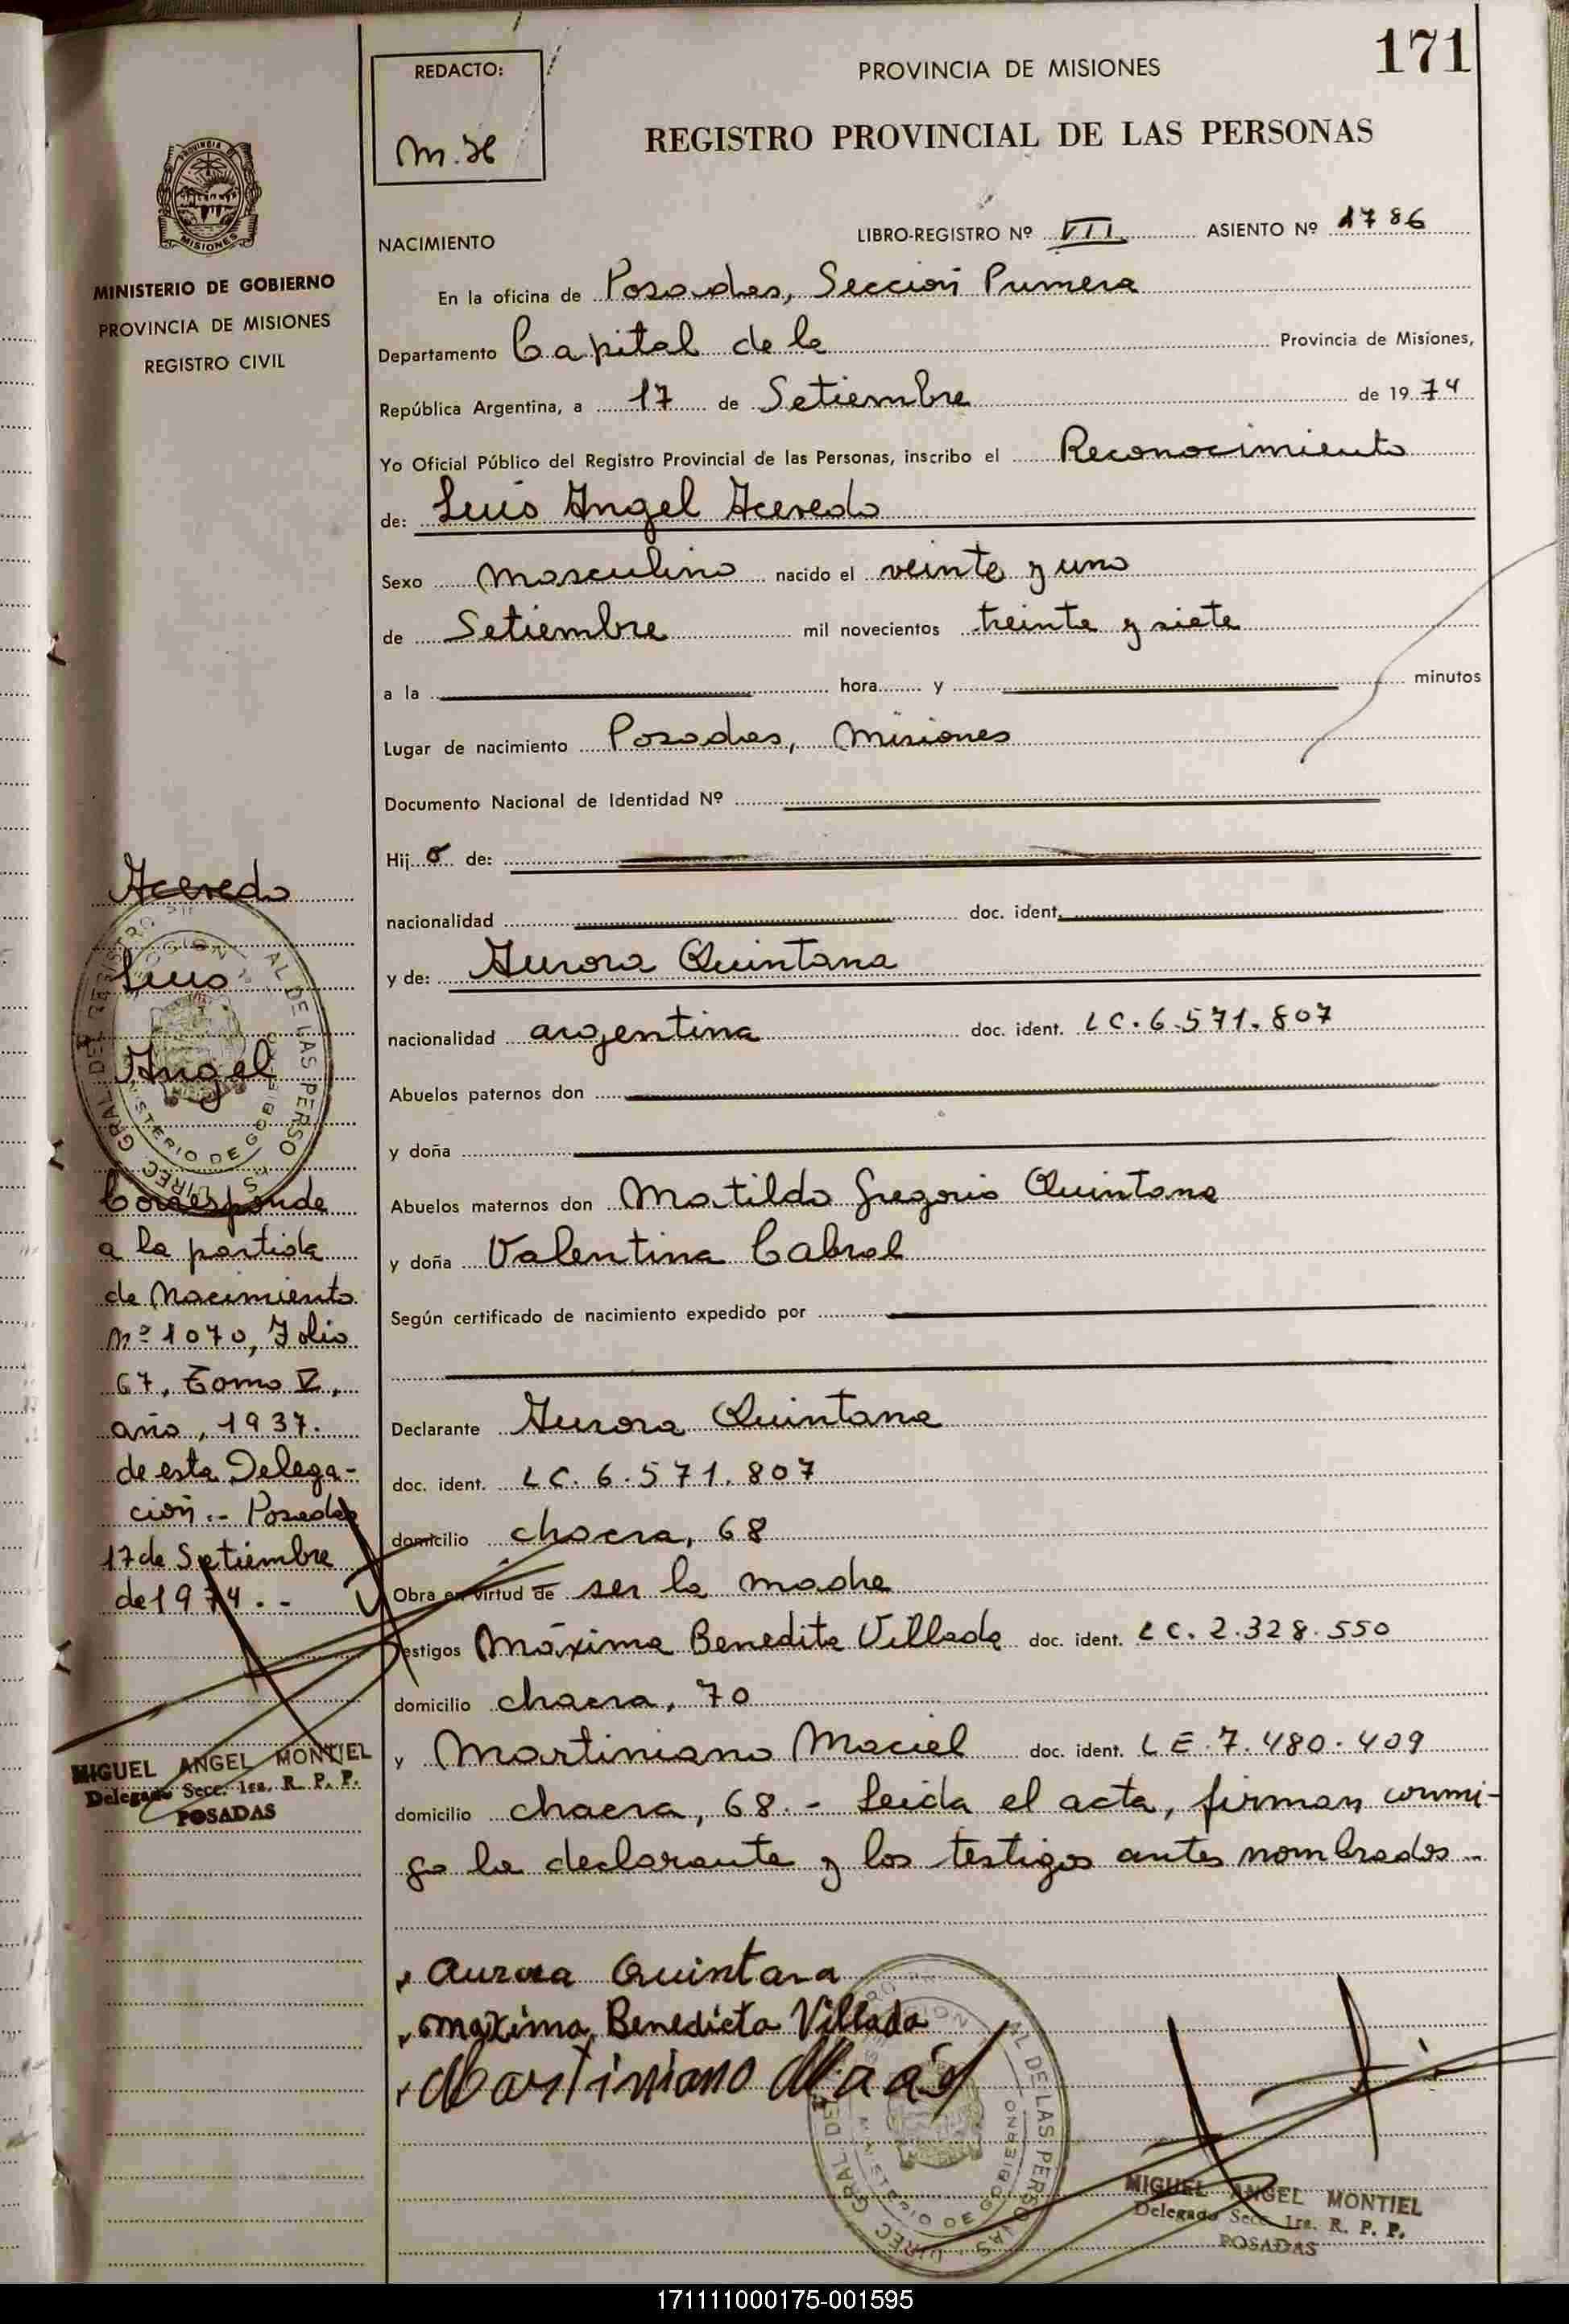 171
REDACTO:
M.H
PROVINCIA DE MISIONES
REGISTRO PROVINCIAL DE LAS PERSONAS
PROVINCIA
MISIONES
MINISTERIO DE GOBIERNO
PROVINCIA DE MISIONES
REGISTRO CIVIL
NACIMIENTO
LIBRO-REGISTRO Nº VII ASIENTO Nº 1786
En la oficina de Posadas, Sección Primera
Departamento Capital de la Provincia de Misiones,
República Argentina, a 17 de Setiembre de 1974
Yo Oficial Público del Registro Provincial de las Personas, inscribo el Reconocimiento
de: Luis Angel Acevedo
Sexo masculino nacido el veinte y uno
de Setiembre mil novecientos treinta y siete
a la hora y minutos
Lugar de nacimiento Posadas, Misiones
Documento Nacional de Identidad Nº
Hijo de:
nacionalidad doc. ident.
y de: Aurora Quintana
nacionalidad argentina doc. ident. LC.6.571.807
Abuelos paternos don
y doña
Abuelos maternos don Matildo Gregorio Quintana
y doña Valentina Cabral
Según certificado de nacimiento expedido por
Declarante Aurora Quintana
doc. ident. LC.6.571.807
domicilio chacra, 68
Obra en virtud de ser la madre
Testigos Máxima Benedita Villada doc. ident. LC.2.328.550
domicilio chacra, 70
y Martiniano Maciel doc. ident. LE.7.480.409
domicilio chacra, 68.- Leída el acta, firman conmi-
go la declarante y los testigos antes nombrados.-
Aurora Quintana
Maxima Benedicta Villada
Martiniano
MIGUEL ANGEL MONTIEL
Delegado Secc. 1ra. R. P. P.
POSADAS
Acevedo
Luis
Angel
Corresponde
a la partida
de Nacimiento
Nº 1070, Folio
67, Tomo V,
año, 1937.
de esta Delega-
ción.- Posadas
17 de Setiembre
de 1974.-
MIGUEL ANGEL MONTIEL
Delegado Secc. 1ra. R. P. P.
POSADAS
171111000175-001595